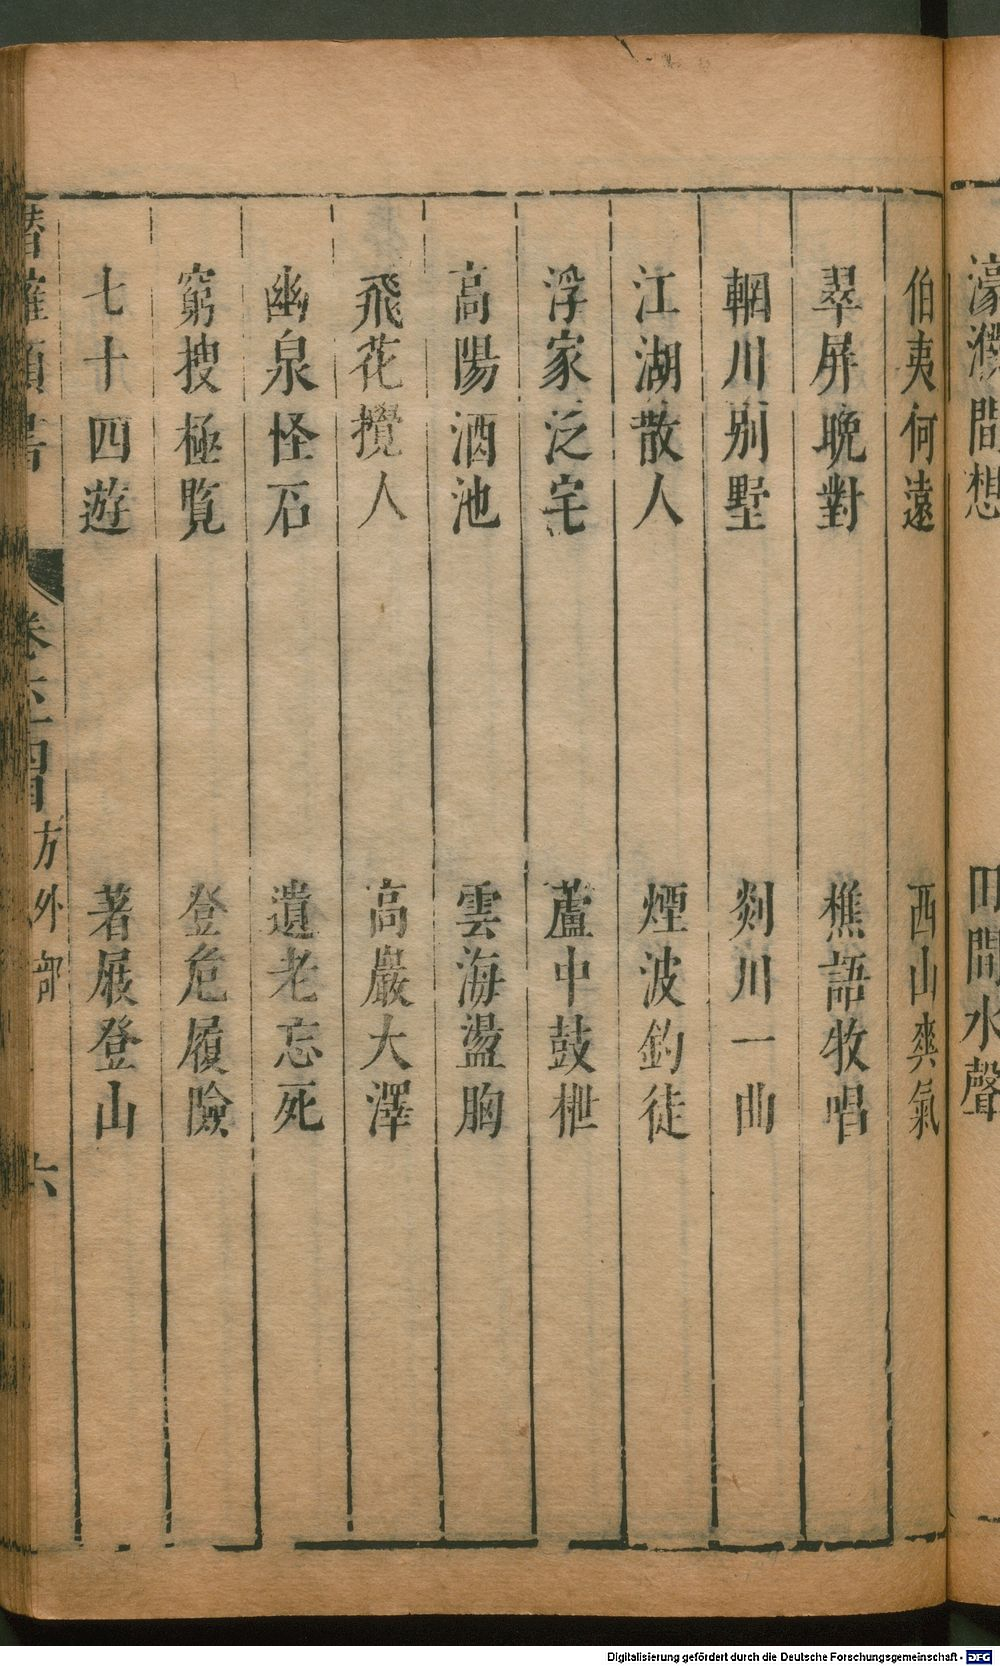 濠濮間想　田間水聲
伯夷何遠　西山爽氣
翠屏晚對　樵語牧唱
輞川別墅　剡川一曲
江湖散人　煙波釣徒
浮家泛宅　蘆中鼓枻
高陽酒池　雲海盪胸
飛花攪人　高巖大澤
幽泉怪石　遺老忘死
窮搜極覧　登危履險
七十四遊　著屐登山
潛確類書　卷六十四　方外部　六
Digitalisierung gefördert durch die Deutsche Forschungsgemeinschaft - DFG